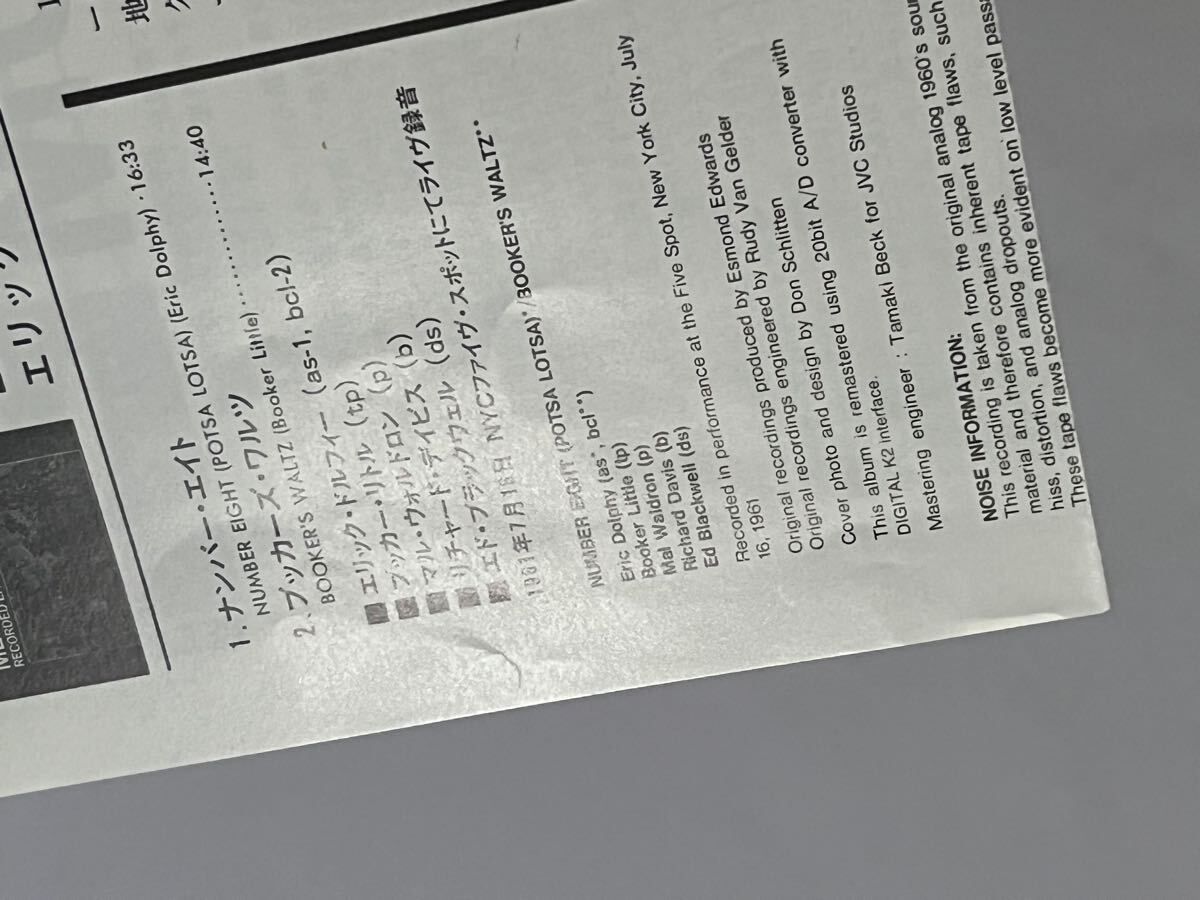 エリック
RECORDED
1. ナンバー・エイト
NUMBER EIGHT (POTSA LOTSA) (Eric Dolphy) · 16:33
2. ブッカーズ・ワルツ
BOOKER'S WALTZ (Booker Little) ················ 14:40
■ エリック・ドルフィー (as-1, bcl-2)
■ ブッカー・リトル (tp)
■ マル・ウォルドロン (p)
■ リチャード・デイビス (b)
■ エド・ブラックウェル (ds)
1961年7月16日 NYCファイヴ・スポットにてライヴ録音
NUMBER EIGHT (POTSA LOTSA)*/BOOKER'S WALTZ**
Eric Dolphy (as*, bcl**)
Booker Little (tp)
Mal Waldron (p)
Richard Davis (b)
Ed Blackwell (ds)
Recorded in performance at the Five Spot, New York City, July
16, 1961
Original recordings produced by Esmond Edwards
Original recordings engineered by Rudy Van Gelder
Cover photo and design by Don Schlitten
This album is remastered using 20bit A/D converter with
DIGITAL K2 interface.
Mastering engineer : Tamaki Beck for JVC Studios
NOISE INFORMATION:
This recording is taken from the original analog 1960's
material and therefore contains inherent tape flaws, such
hiss, distortion, and analog dropouts.
These tape flaws become more evident on low level